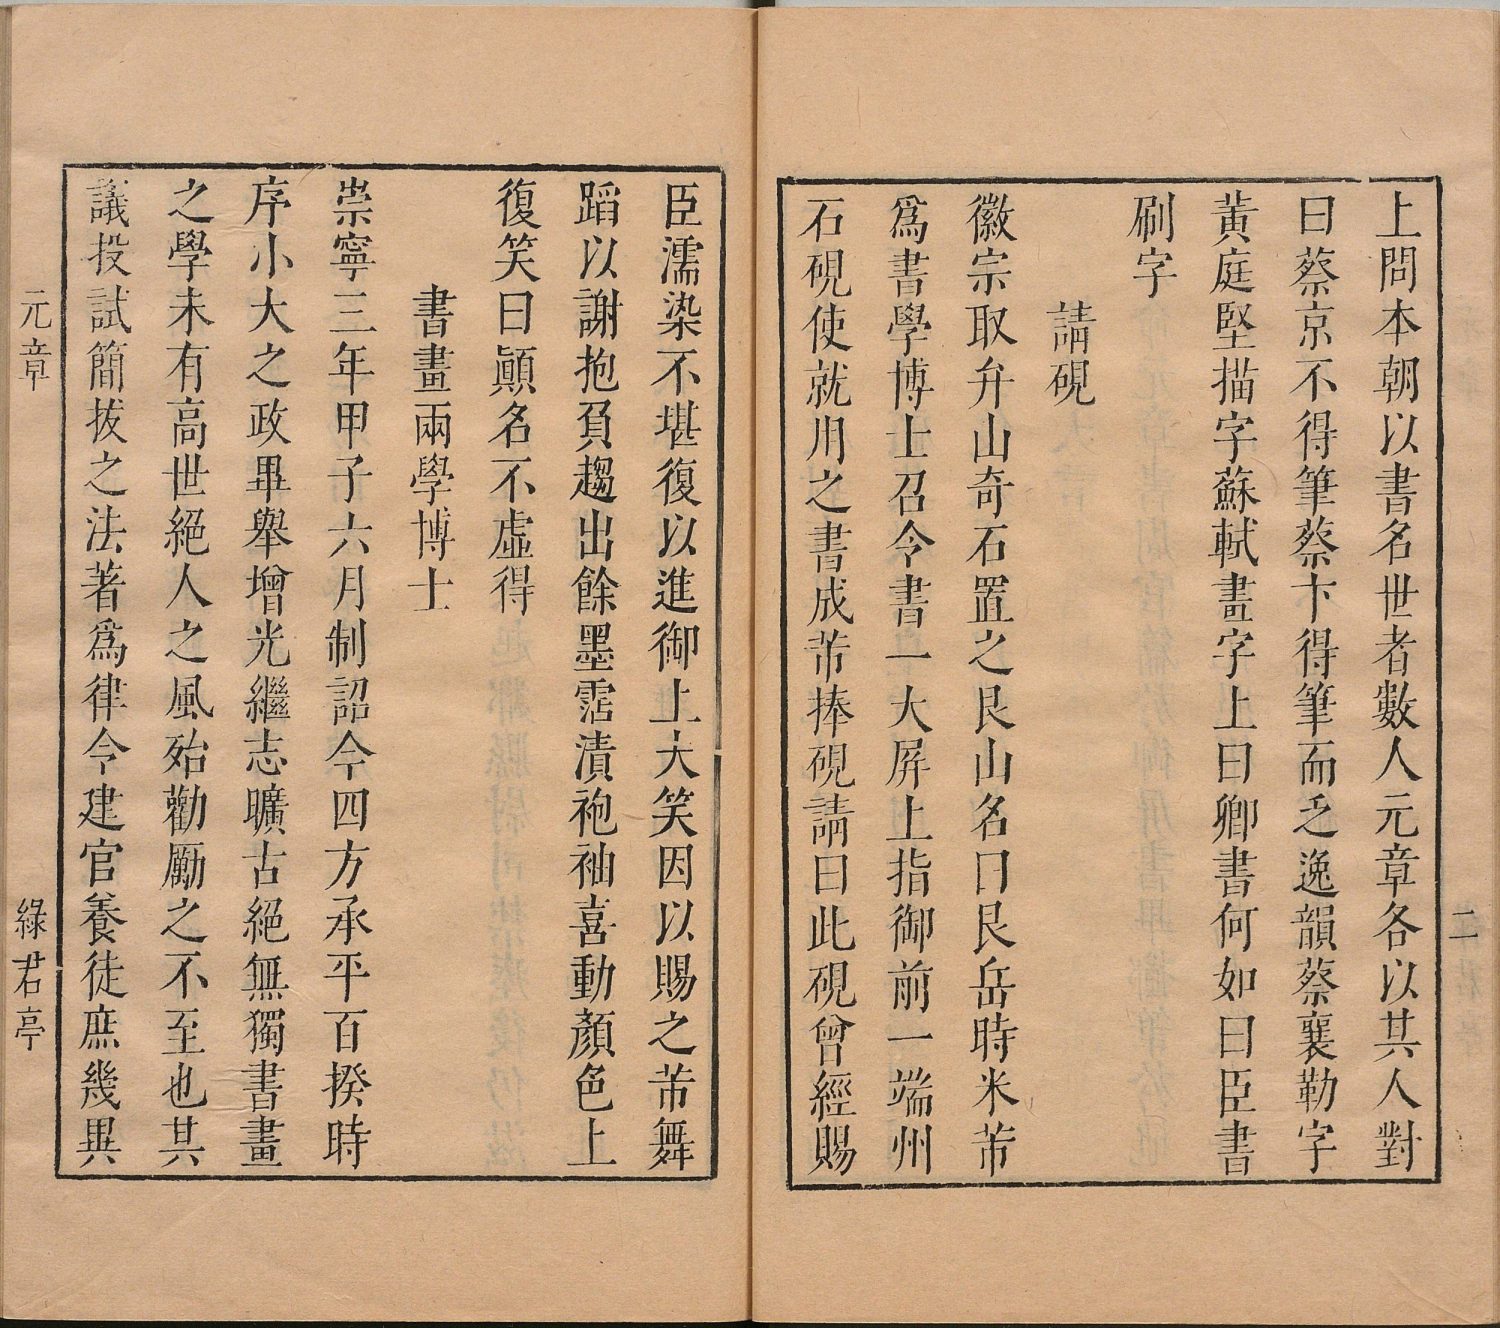 上問本朝以書名世者數人元章各以其人對
曰蔡京不得筆蔡卞得筆而乏逸韻蔡襄勒字
黃庭堅描字蘇軾畫字上曰卿書何如曰臣書
刷字
請硯
徽宗取弁山奇石置之艮山名曰艮岳時米芾
爲書學博士召令書一大屏上指御前一端州
石硯使就用之書成芾捧硯請曰此硯曾經賜
二
臣濡染不堪復以進御上大笑因以賜之芾舞
蹈以謝抱負趨出餘墨霑漬袍袖喜動顏色上
復笑曰顚名不虛得
書畫兩學博士
崇寧三年甲子六月制詔令四方承平百揆時
序小大之政畢舉增光繼志曠古絕無獨書畫
之學未有高世絕人之風殆勸勵之不至也其
議投試簡拔之法著爲律令建官養徒庶幾異
元章
綠君亭